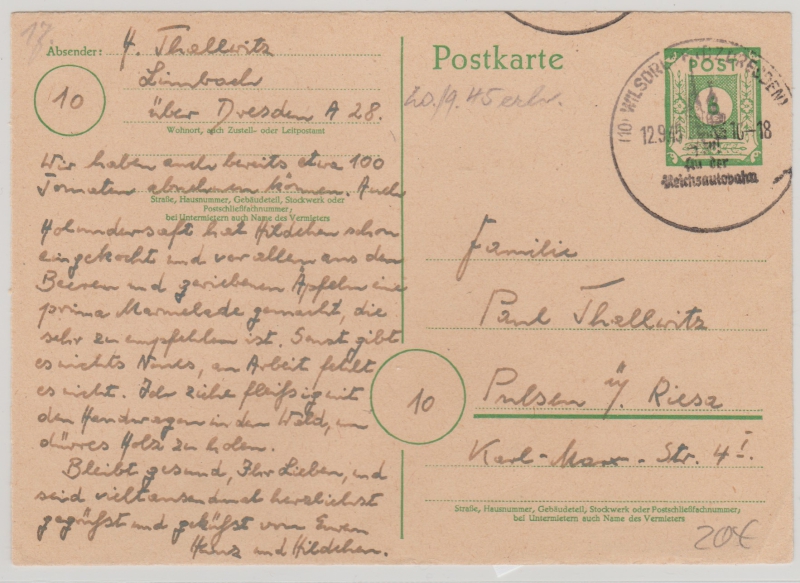 Absender: H. Thellwitz
10
Limbach
über Dresden A 28.
Wohnort, auch Zustell- oder Leitpostamt
Wir haben auch bereits etwa 100
Tomaten abnehmen können. Auch
Straße, Hausnummer, Gebäudeteil, Stockwerk oder
Postschließfachnummer;
bei Untermietern auch Name des Vermieters
Holundersaft hat Hildchen schon
eingekocht und vor allem aus den
Beeren und geriebenen Äpfeln eine
prima Marmelade gemacht, die
sehr zu empfehlen ist. Sonst gibt
es nichts Neues, an Arbeit fehlt
es nicht. Ich ziehe fleißig mit
dem Handwagen in den Wald, um
dürres Holz zu holen.
Bleibt gesund, Ihr Lieben, und
seid vieltausendmal herzlichst
gegrüßt und geküßt von Euren
Heinz und Hildchen.
Postkarte
20./9.45 erh.
POST
6
(10) WILSDRUFF (DRESDEN)
12.9.45 16-18
an der
Reichsautobahn
Familie
Paul Thellwitz
10
Pulsen ü/. Riesa
Karl-Marx-Str. 4
Straße, Hausnummer, Gebäudeteil, Stockwerk oder Postschließfachnummer;
bei Untermietern auch Name des Vermieters
20€